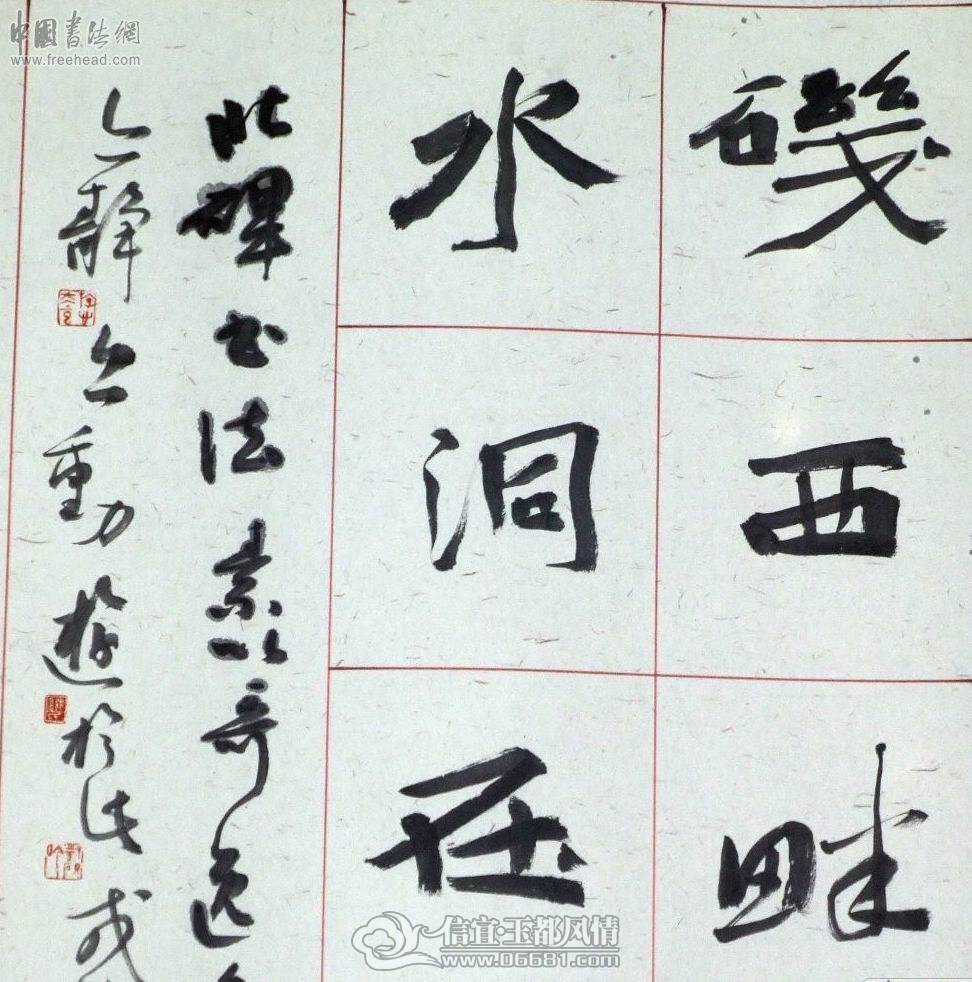 中國書法網
www.freehead.com
磯西畔
水洞在
此碑書法素以奇逸
靜動遊於法
信宜·玉都风情
www.06681.com